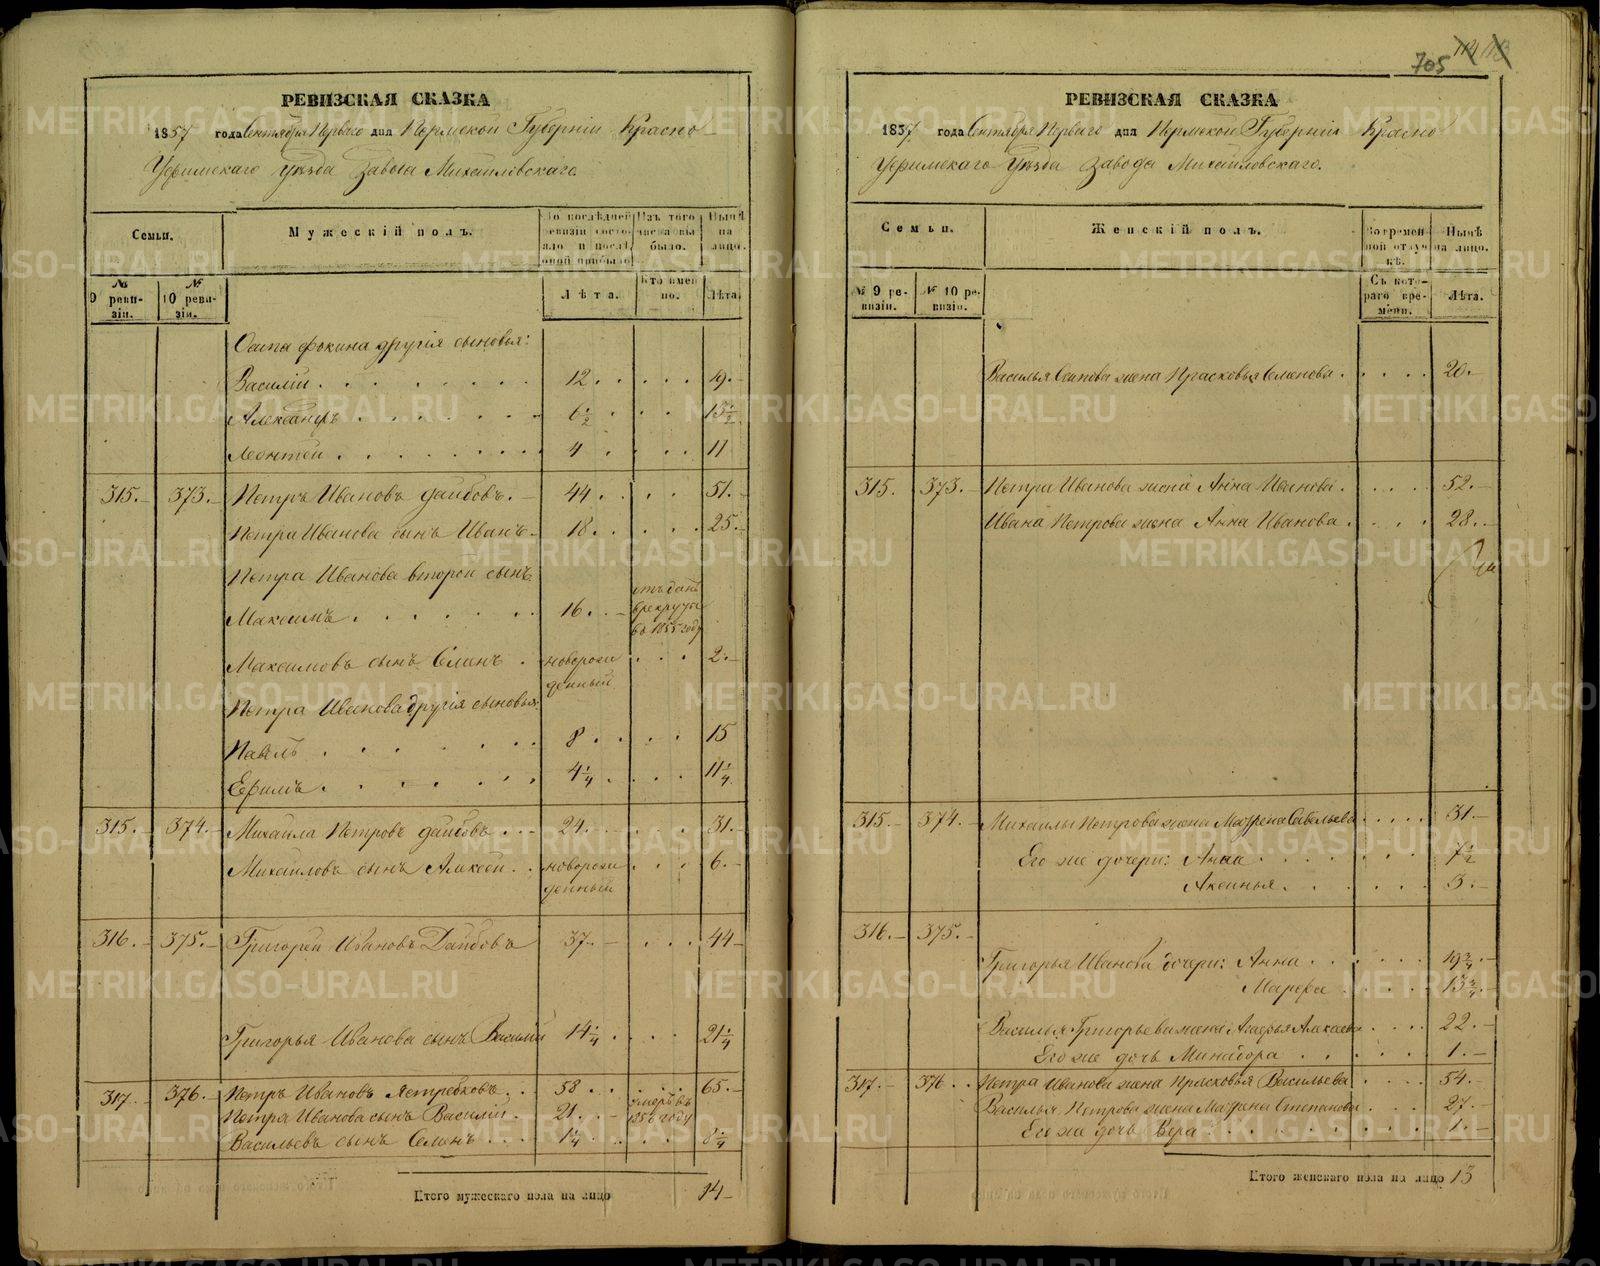 РЕВИЗСКАЯ СКАЗКА
1857 года Сентября Перваго дня Пермской Губерніи Красно
Уфимскаго Уѣзда Завода Михайловскаго.
Семьи.
Мужескій полъ.
По послѣдней ревизіи состояло и послѣ оной прибыло
Изъ того числа выбыло.
Нынѣ на лицо.
№ 9 ревизіи.
№ 10 ревизіи.
Лѣта.
Кто именно.
Лѣта.
Осипа Фокина другія сыновья:
Василій 12 19
Александръ 6 1/2 13 1/2
Леонтей 4 11
315. 373. Петръ Ивановъ 44 51
Петра Иванова сынъ Иванъ 18 25
Петра Иванова второй сынъ
Максимъ 16 отъданъ в рекруты въ 1855 году
Максимовъ сынъ новорожденный 2
Петра Иванова другія сыновья:
Павелъ 8 15
Ефимъ 4 1/4 11 1/4
315. 374. Михайла Петровъ 24 31
Михайловъ сынъ Алексей новорожденный 6
316. 375. Григорей Ивановъ 37 44
Григорья Иванова сынъ Василій 14 1/4 21 1/4
317. 376. Петръ Ивановъ Ястребковъ 58 65
Петра Иванова сынъ Василій 21 умеръ въ 1856 году
Васильевъ сынъ 1 1/4 8 1/4
Итого мужескаго пола на лицо 14
705 114 113
РЕВИЗСКАЯ СКАЗКА
1857 года Сентября Перваго дня Пермской Губерніи Красно
Уфимскаго Уѣзда Завода Михайловскаго.
Семьи.
Женскій полъ.
Во временной отлучкѣ.
Нынѣ на лицо.
№ 9 ревизіи.
№ 10 ревизіи.
Съ котораго времени.
Лѣта.
Василья Осипова жена Прасковья Семенова 20
315. 373. Петра Иванова жена Анна Иванова 52
Ивана Петрова жена Анна Иванова 28
315. 374. Михайлы Петрова жена Матрена Савельева 31
Его же дочери: Анна 7 1/2
Аксинья 3
316. 375.
Григорья Иванова дочери: Анна 19 3/4
Марфа 13 3/4
Василья Григорьева жена Агафья 22
Его же дочь Минадора 1
317. 376. Петра Иванова жена Прасковья Васильева 54
Василья Петрова жена Матрена Степанова 27
Его же дочь Вера 1
Итого женскаго пола на лицо 13
METRIKI.GASO-URAL.RU